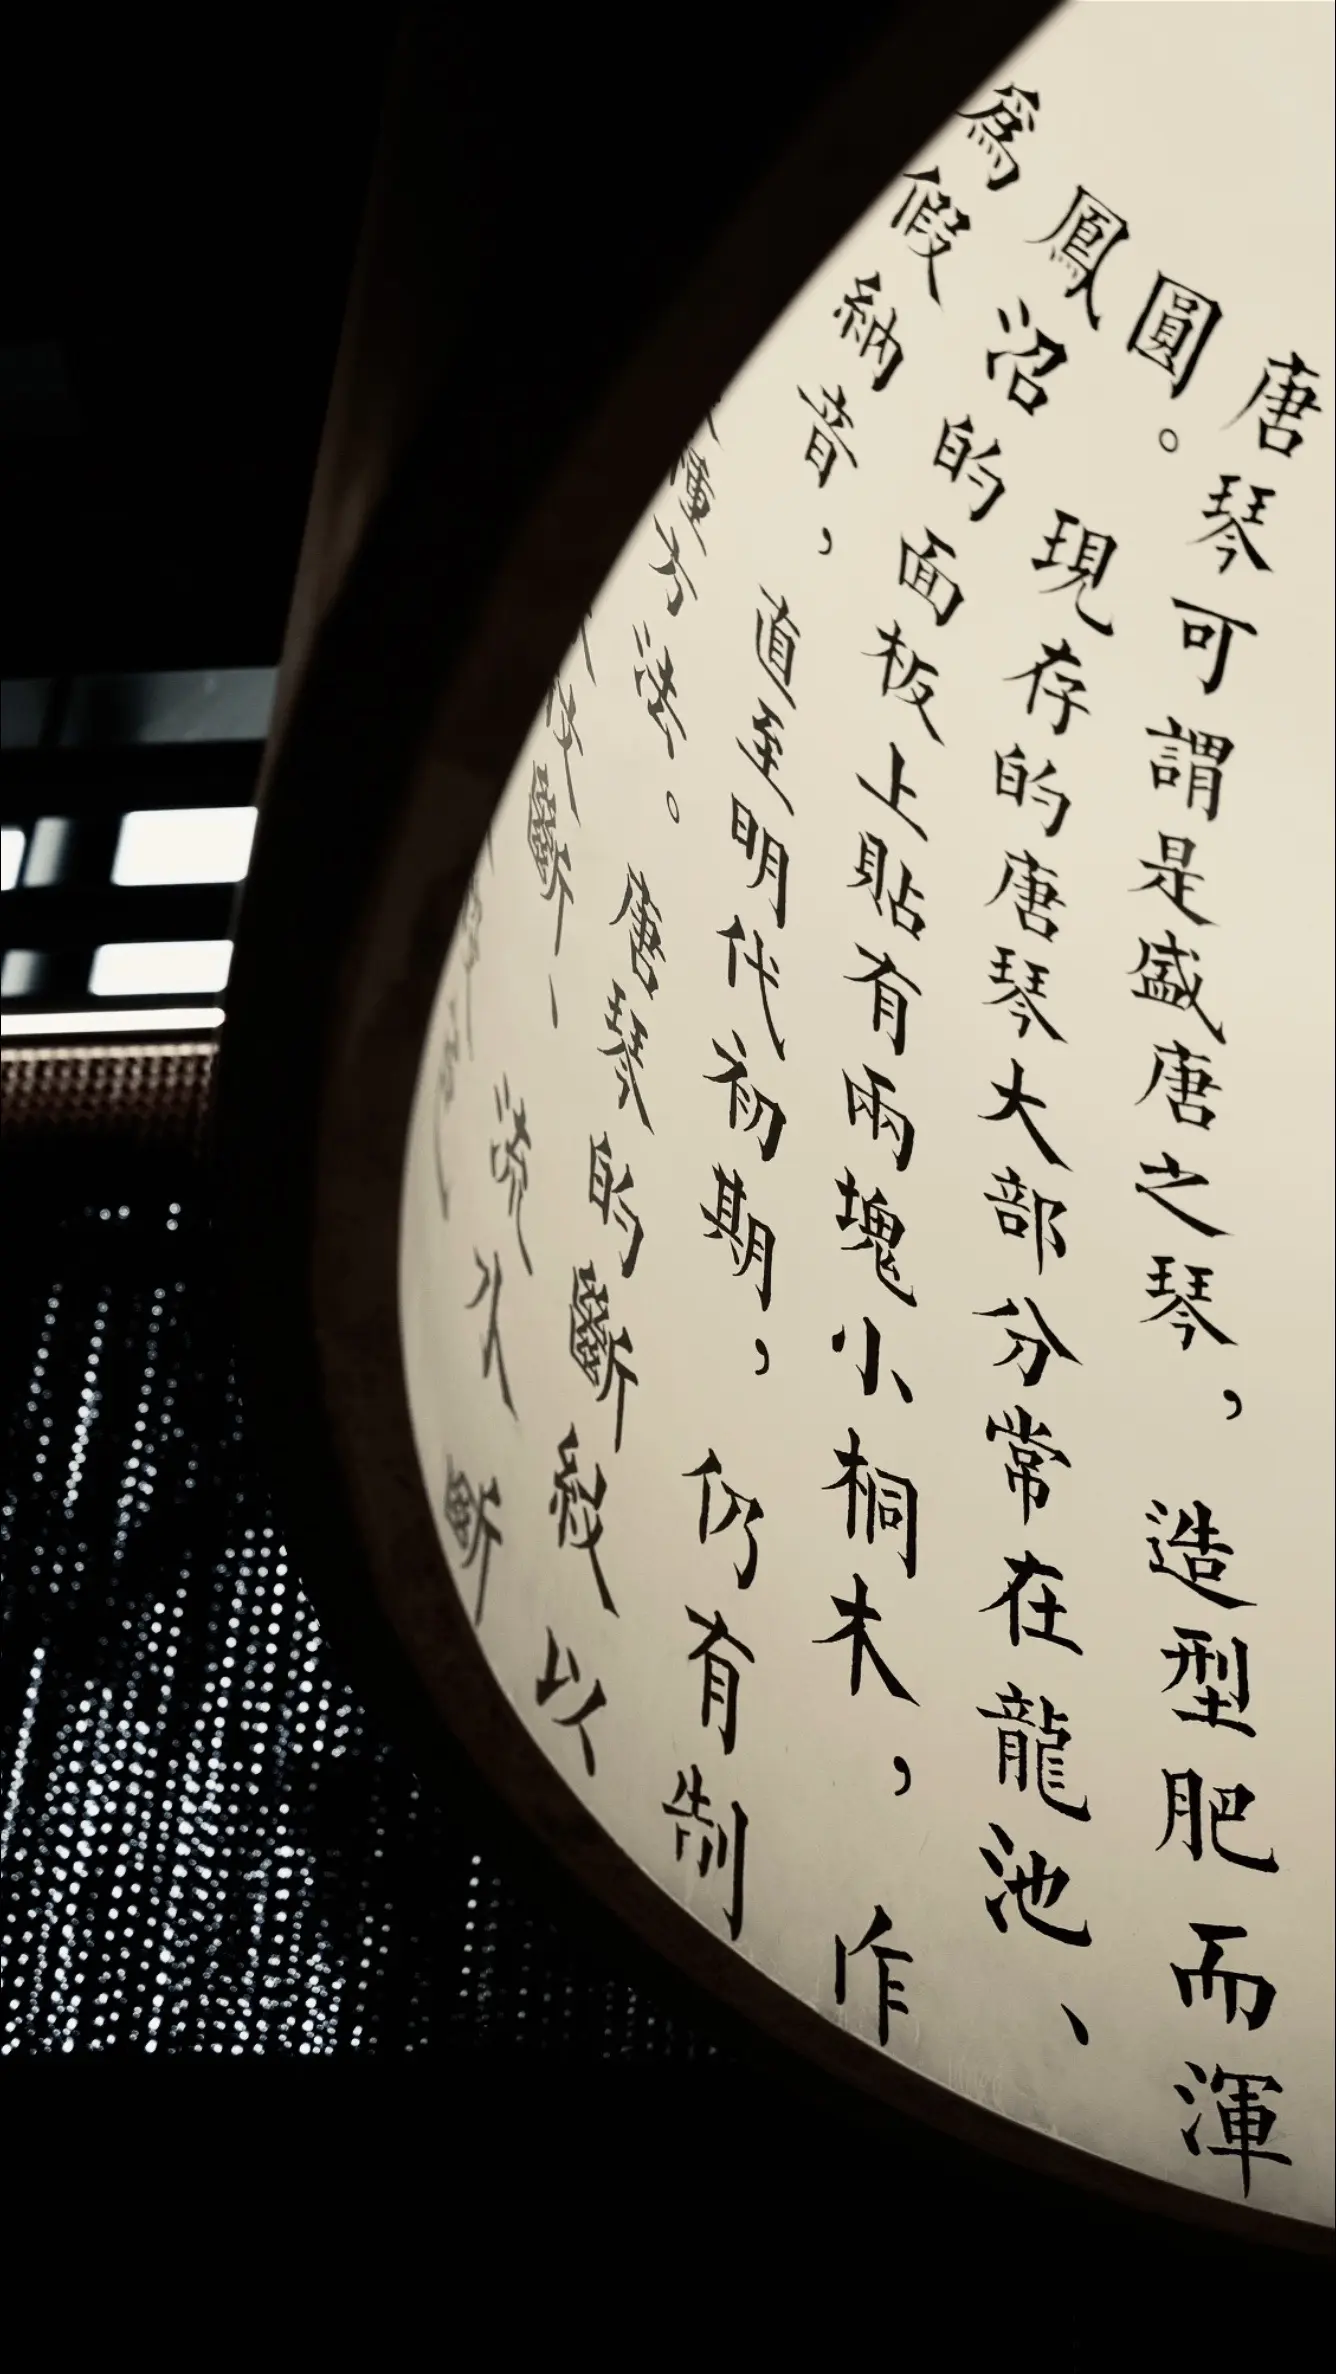 唐琴可謂是盛唐之琴，造型肥而渾
圓。現存的唐琴大部分常在龍池、
鳳沼的面板上貼有兩塊小桐木，作
爲假納音，直至明代初期，仍有制
方法。唐琴的斷紋以
斷、流水斷